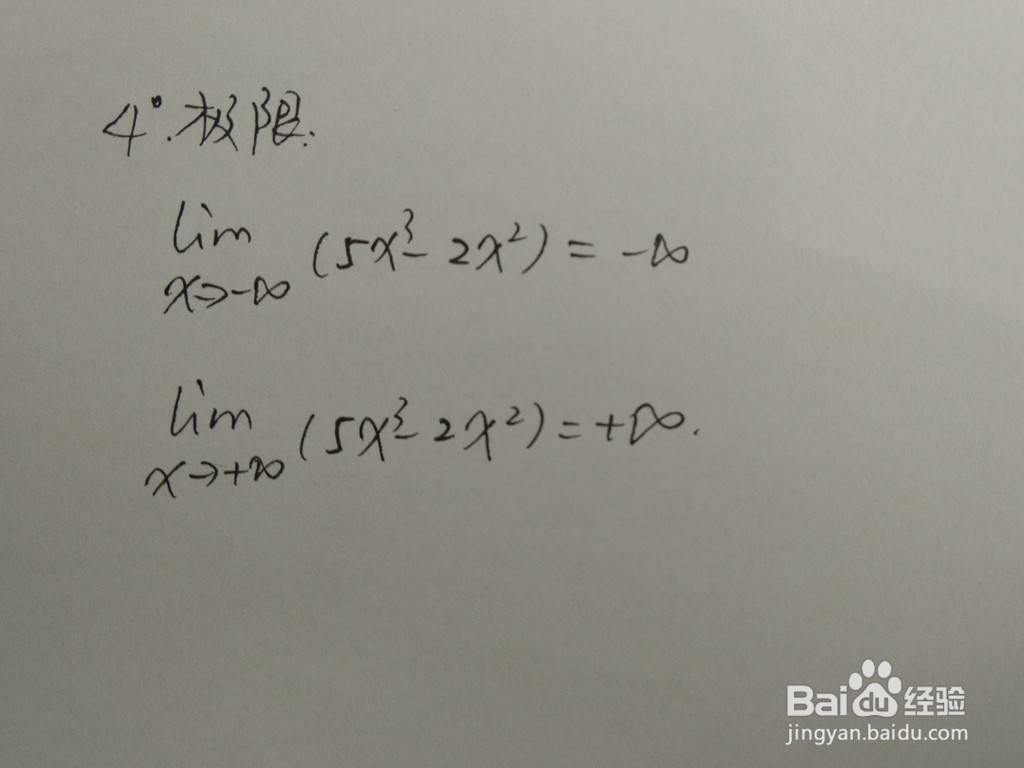 4°.极限.
lim (5x³-2x²) = -∞
x→-∞
lim (5x³-2x²) = +∞.
x→+∞
Bai du 经验
jingyan.baidu.com